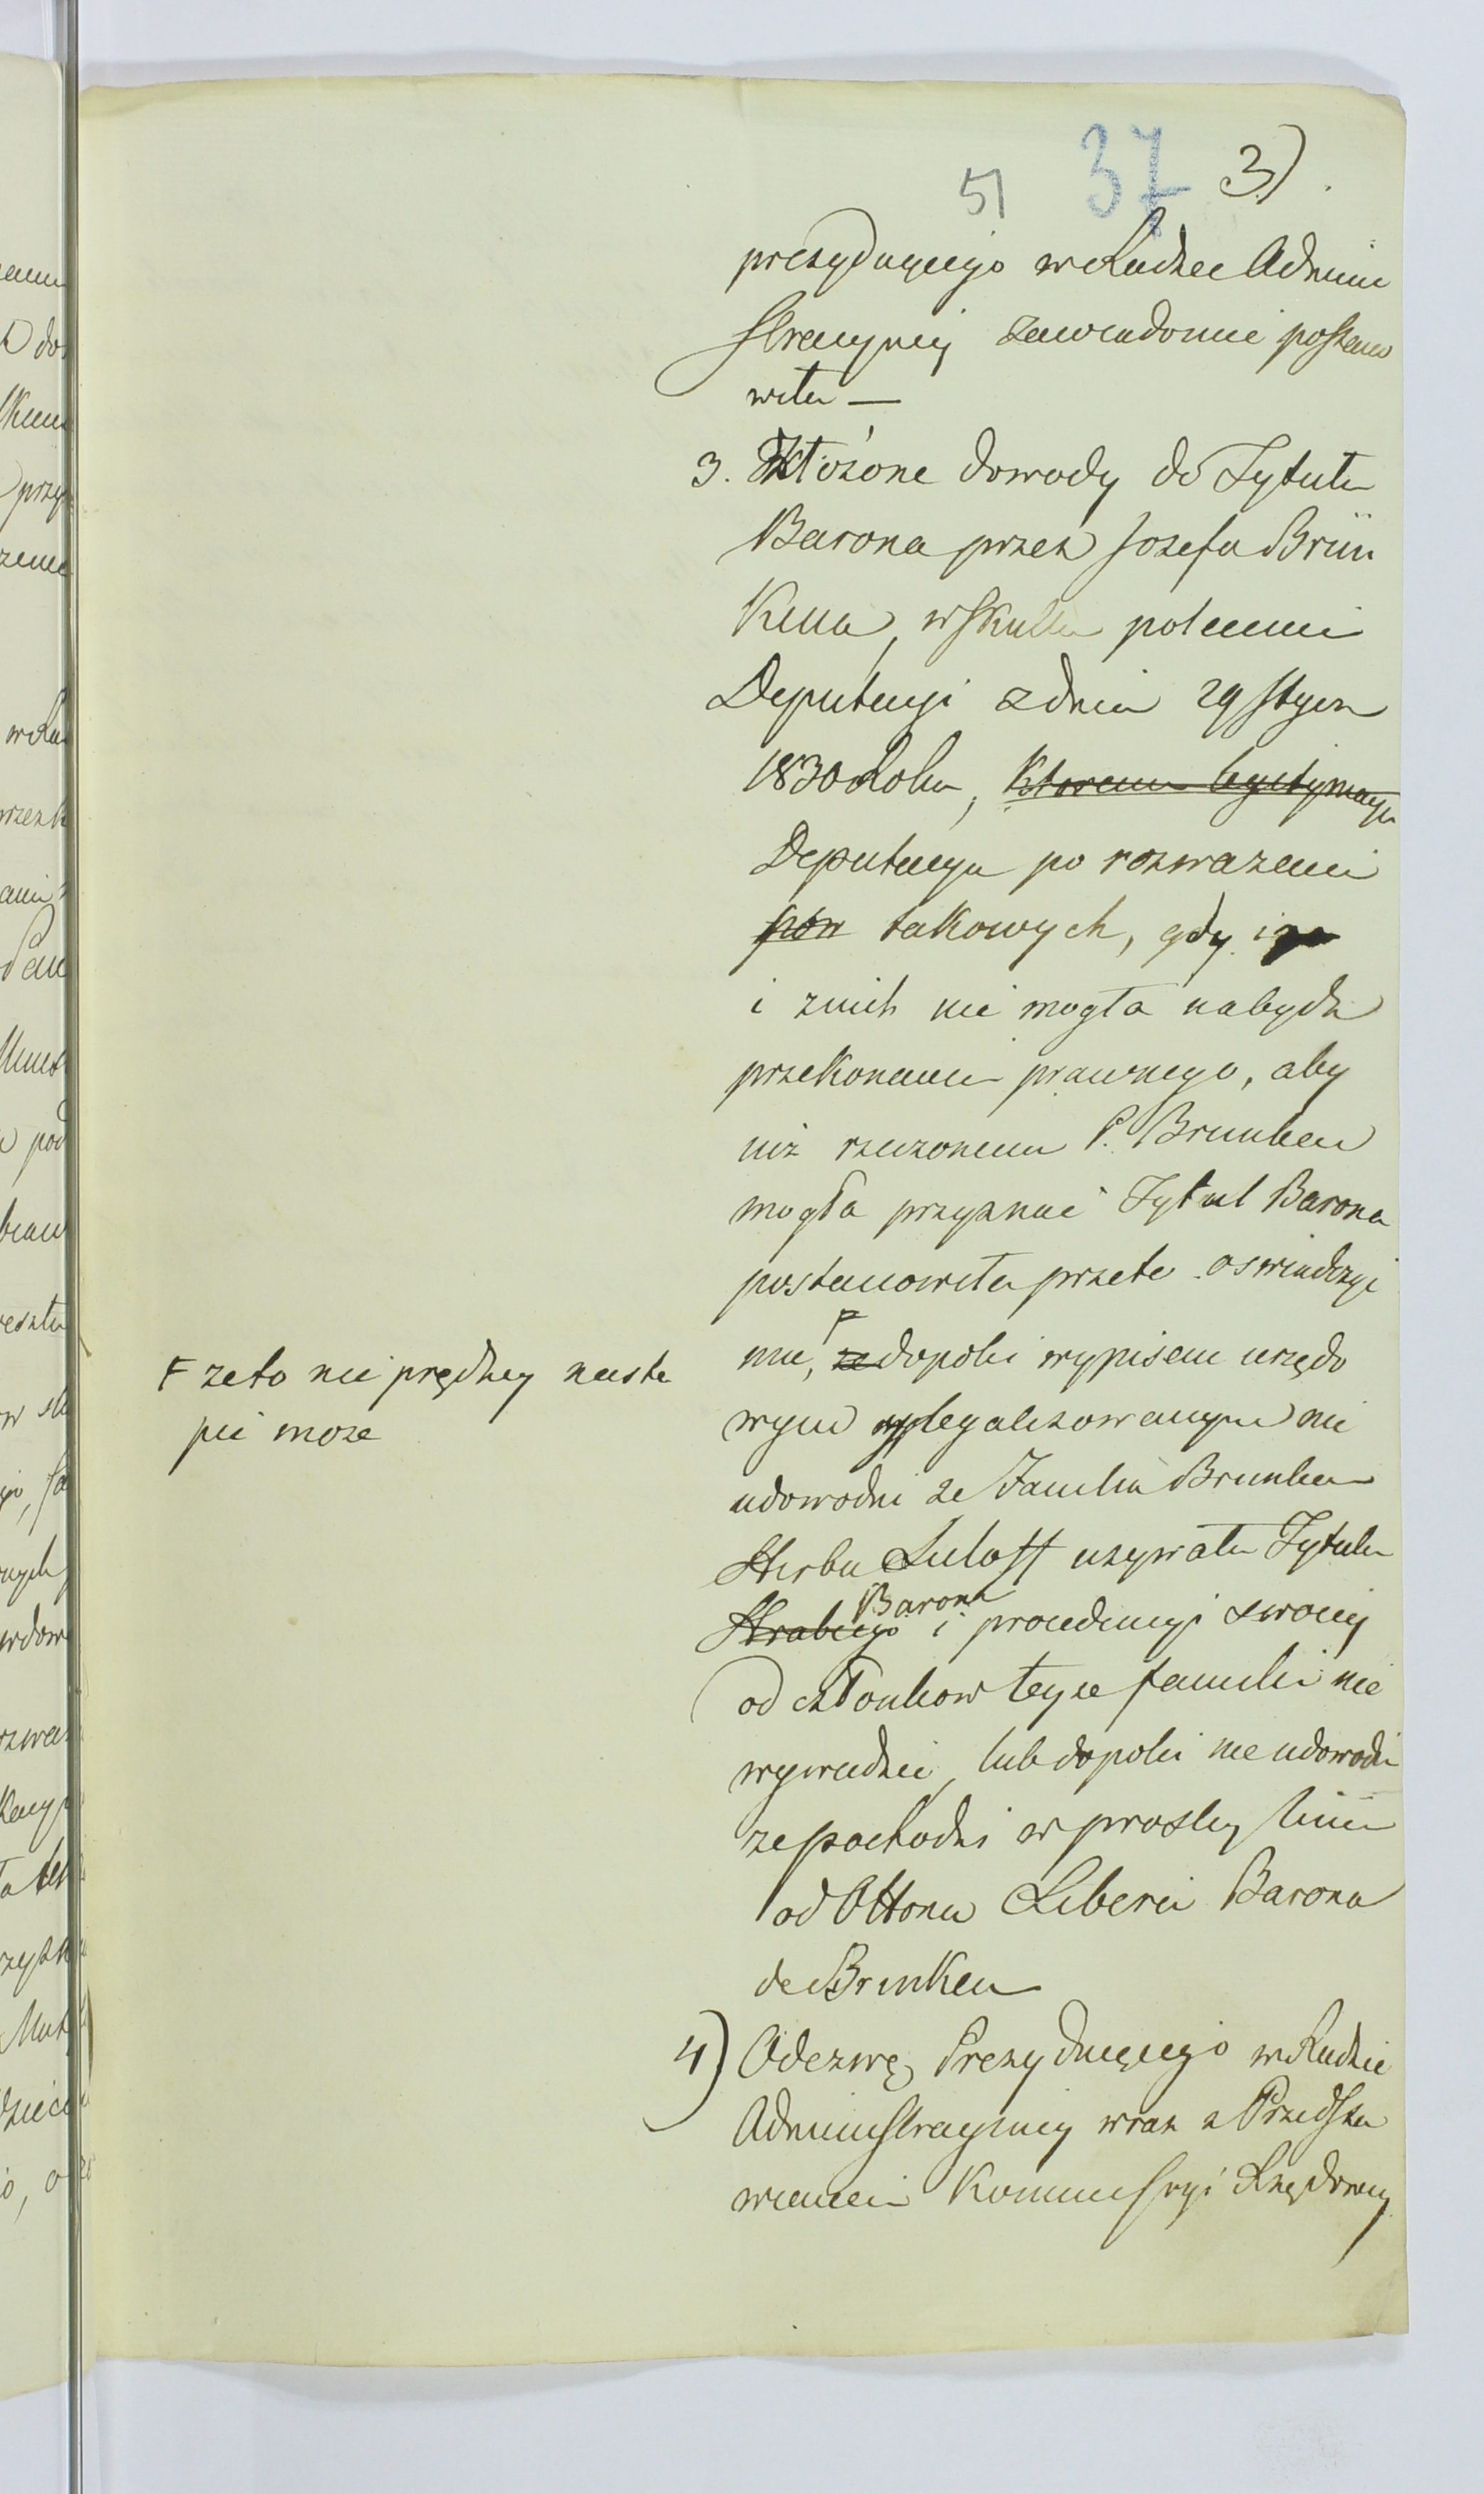 51 37 3).
prezydującego w Radzie Admini
stracyjnej zawiadomić postano
wiła —
3. Złożone dowody do Tytułu
Barona przez Jozefa Brün
kena, w skutku polecenia
Deputacyi z dnia 29 Stycz
1830 Roku, ktoremu legitymacyi
Deputacya po rozważeniu
takowych, gdy
i z nich nie mogła nabydz
przekonania prawnego, aby
niż rzeczonemu P. Brunken
mogła przyznać Tytuł Barona
postanowiła przeto oświadczyć
mu, że dopoki wypisem urzędo
F żeto nie prędzey nastą
pić może
wym zlegalizowanym nie
udowodni że Familia Brunken
Herbu Luloff używała Tytułu
Barona
Hrabiego i procedencyi swoiey
od członkow teyże familii nie
wywiedzie, lub dopoki nie udowodni
że pochodzi w prostey linii
od Ottona Liberi Barona
de Brinken
4) Odezwę Prezydującego w Radzie
Administracyiney wraz z Przedsta
wieniem Kommissyi Rządowey